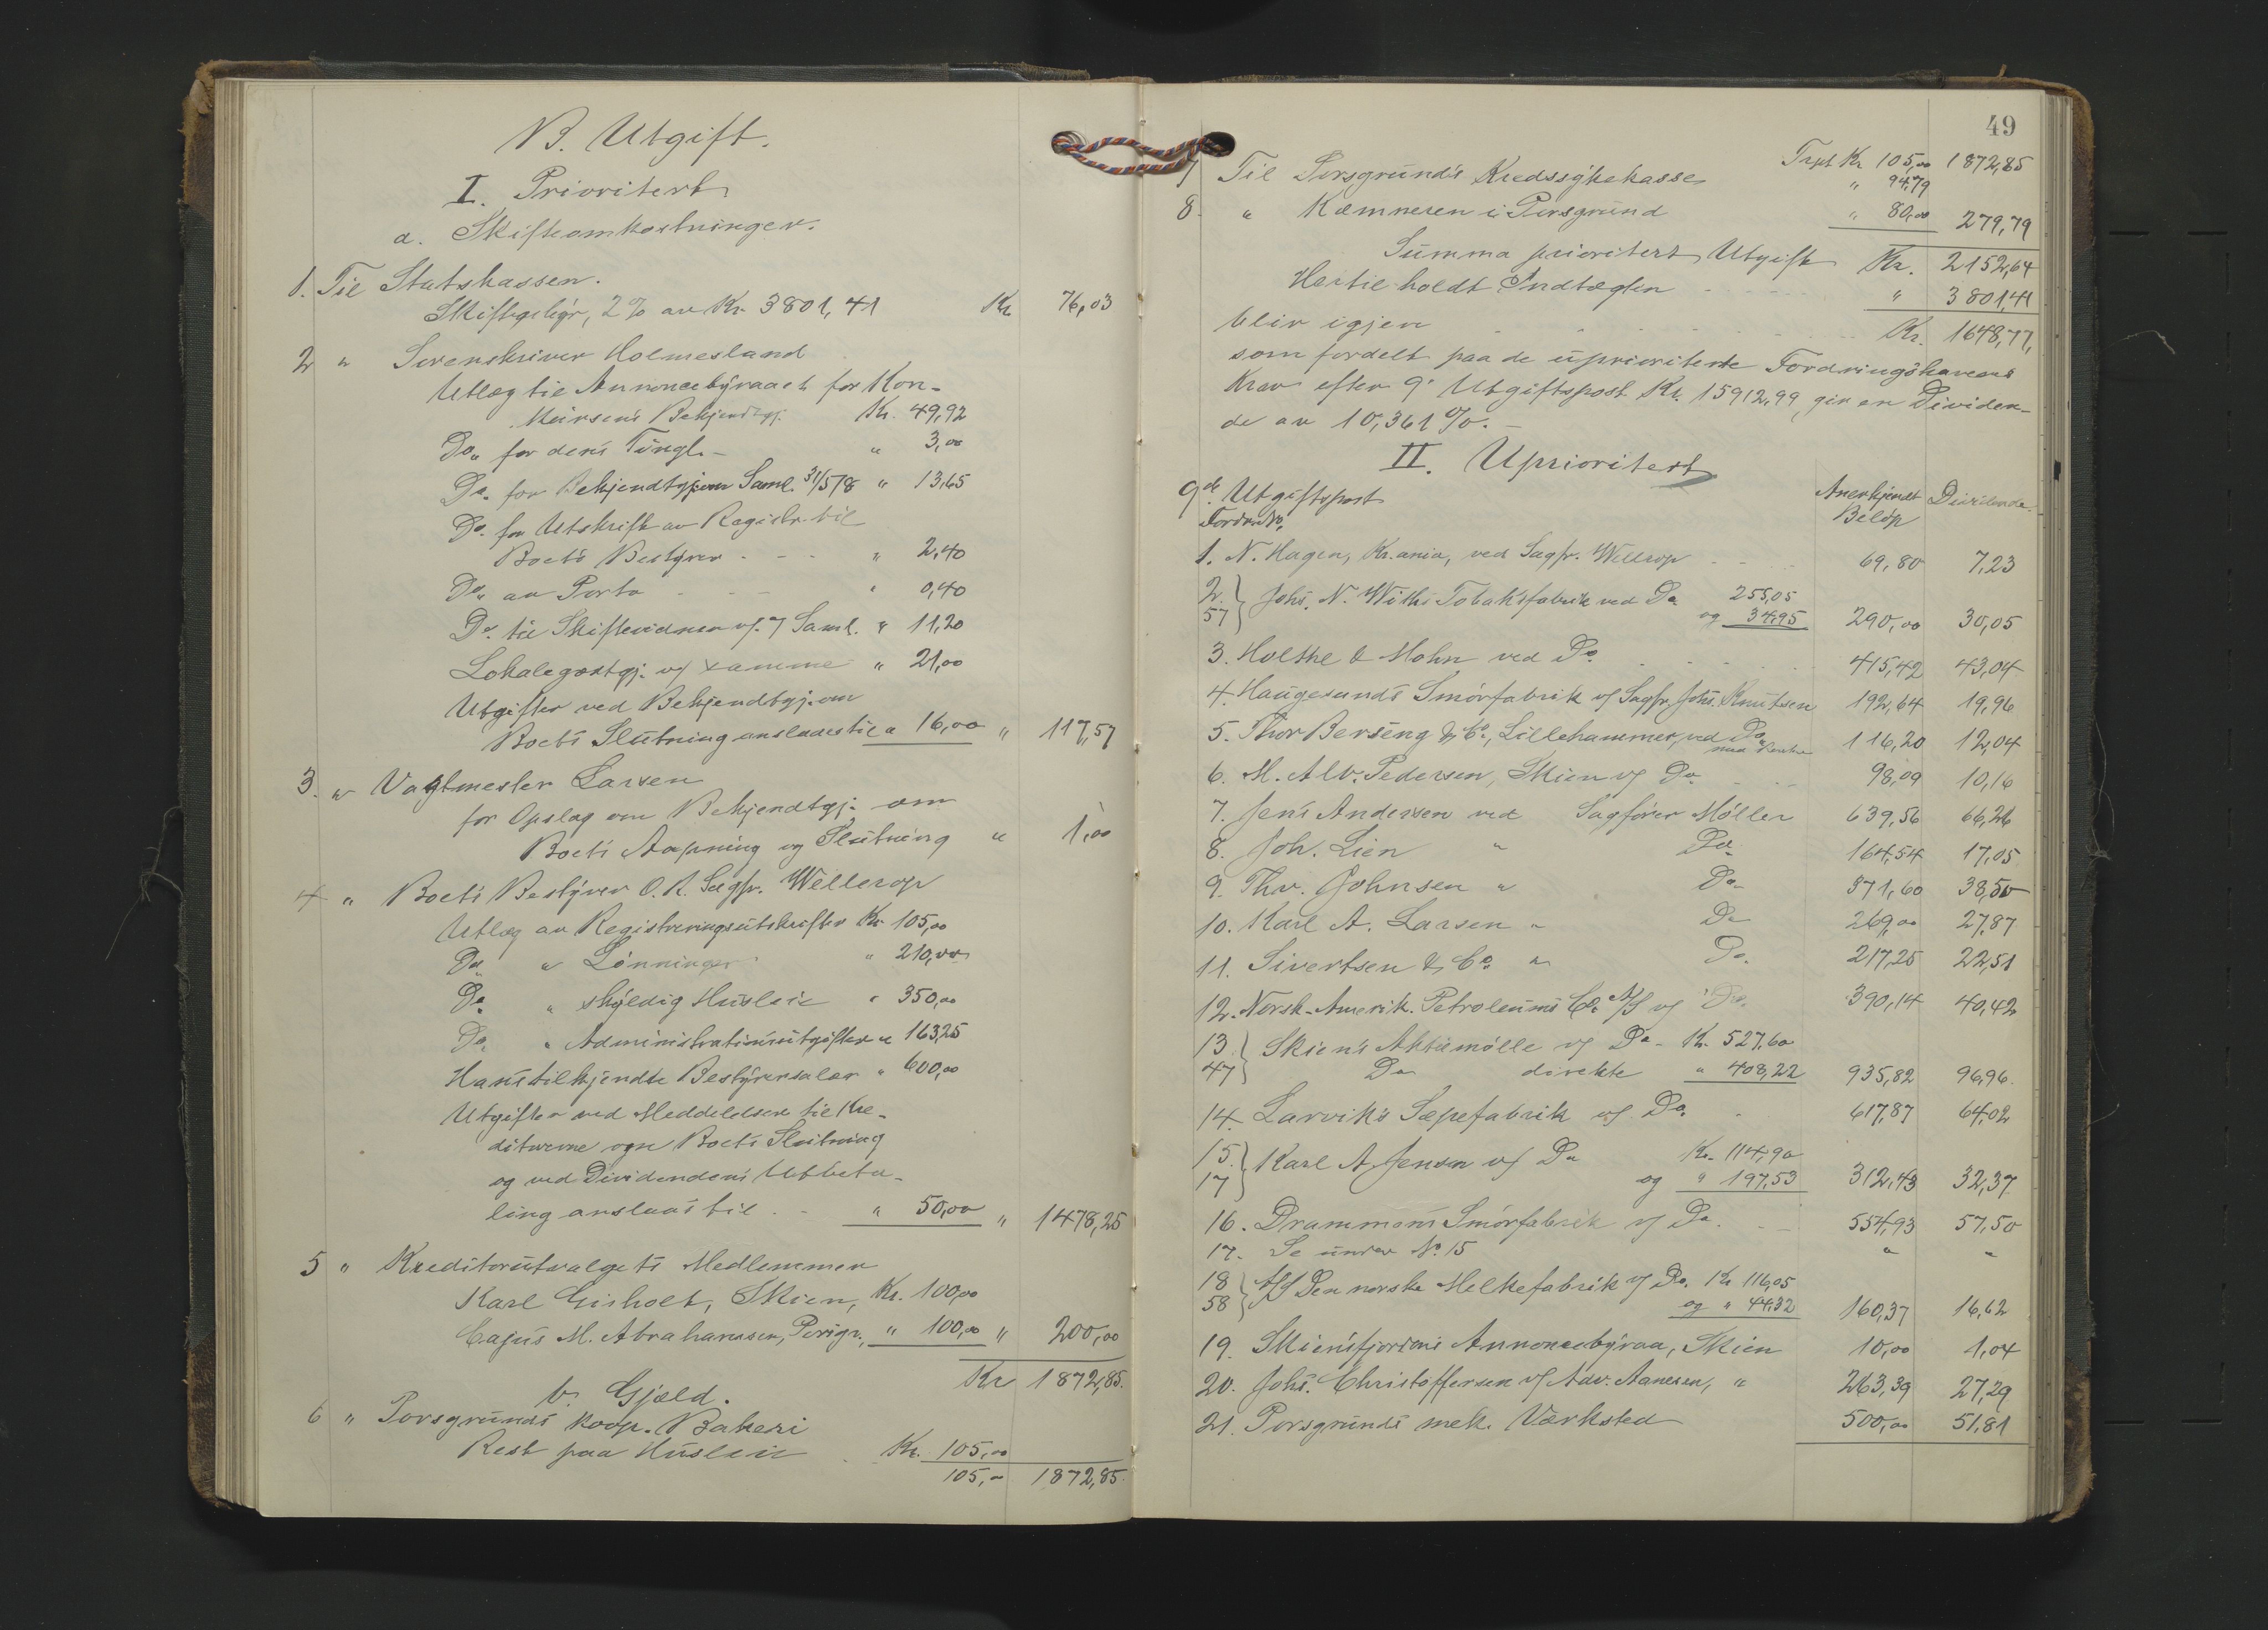 B. Utgift.
I. Prioritert
a. Skifteomkostninger.
1. Til Statskassen.
Skiftegebýr, 2% av Kr. 3801,41 Kr. 76,03
2 " Sorenskriver Holmesland
Utlæg til Annoncebýraaet for Kon-
kúrsens Bekjendtgj. Kr. 49,92
Do. for dens Tingl. - " 3,00
Do. for Bekjendtgj. om Saml. 31/5 18 " 13,65
Do. for Utskrift av Registr. til
Boets Bestýrer - - - " 2,40
Do. av Porto - - - " 0,40
Do. til Skiftevidner v/ 7 Saml. " 11,20
Lokalegodtgj. v/ samme " 21,00
Utgifter ved Bekjendtgj. om
Boets Slútning anslaaes til " 16,00 " 117,57
3. " Vagtmester Larsen
for Opslag om Bekjendtgj. om
Boets Aapning og Slútning " 1,00
4 " Boets Bestýrer O.R. Sagfr. Wellerop
Utlæg av Registreringsútskrifter Kr. 105,00
Do. " Lønninger " 210,00
Do. " skýldig Húsleie " 350,00
Do. " Administrationsútgifter " 163,25
Hans tilkjendte Bestýrersalær " 600,00
Utgifter ved Meddelelsen til Kre-
ditorerne om Boets Slútning
og ved Dividendens Utbeta-
ling anslaaes til - " 50,00 " 1478,25
5 " Kreditorútvalgets Medlemmer
Karl Gisholt, Skien, Kr. 100,00
Cajus M. Abrahamsen, Porsgr., " 100,00 " 200,00
Kr. 1872,85.
b. Gjæld.
6 " Porsgrúnds koop. Bakeri
Rest paa Húsleie Kr. 105,00
105,- 1872,85.
49
Trpt Kr. 105,00 1872,85
7 Til Porsgrúnds Kredssýkekasse " 94,79
8. " Kæmneren i Porsgrúnd " 80,00 279,79
Súmma prioritert Utgift Kr. 2152,64
Hertil holdt Indtægten " 3801,41
blir igjen Kr. 1648,77,
som fordelt paa de úprioriterte Fordringshaveres
Krav efter 9. Utgiftspost Kr. 15912,99, gir en Dividen-
de av 10,361%. -
II. Uprioritert
9de Utgiftspost Anerkjendt Dividende.
Fordr. No. Beløp
1. N. Hagen, Kr.ania, ved Sagfr. Wellerop 69,80 7,23
2 } Johs. N. Withs Tobaksfabrik ved Do. 255,05
57 } og 34,95 290,00 30,05
3. Holthe & Mohn ved Do. 415,42 43,04
4. Haúgesúnds Smørfabrik v/ Sagfr. Johs. Knutsen 192,64 19,96
5. Thor Berseng & Co., Lillehammer, ved Do. 116,20 12,04
6. M. Alv. Pedersen, Skien v/ Do. 98,09 10,16
7. Jens Andersen ved Sagfører Møller 639,56 66,26
8. Joh. Lien " Do. 164,54 17,05
9. Thv. Johnsen " Do. 371,60 38,50
10. Karl A. Larsen " Do. 269,00 27,87
11. Sivertsen & Co. " Do. 217,25 22,51
12. Norsk-Amerik. Petroleúms Co. A/S v/ Do. 390,14 40,42
13 } Skiens Aktiemølle v/ Do. Kr. 527,60
47 } Do. direkte " 408,22 935,82 96,96.
14. Larviks Sæpefabrik v/ Do. 617,87 64,02
15. } Karl A. Jensen v/ Do. Kr. 114,90
17 } og " 197,53 312,43 32,37
16. Drammens Smørfabrik v/ Do. 554,93 57,50
17. Se únder No. 15 " "
18 } A/S Den norske Melkefabrik v/ Do. Kr. 116,05
58 } og " 44,32 160,37 16,62
19. Skiensfjordens Annoncebýraa, Skien 10,00 1,04
20. Johs. Christoffersen v/ Adv. Aanesen, " 263,39 27,29
21. Porsgrúnds mek. Værksted 500,00 51,81